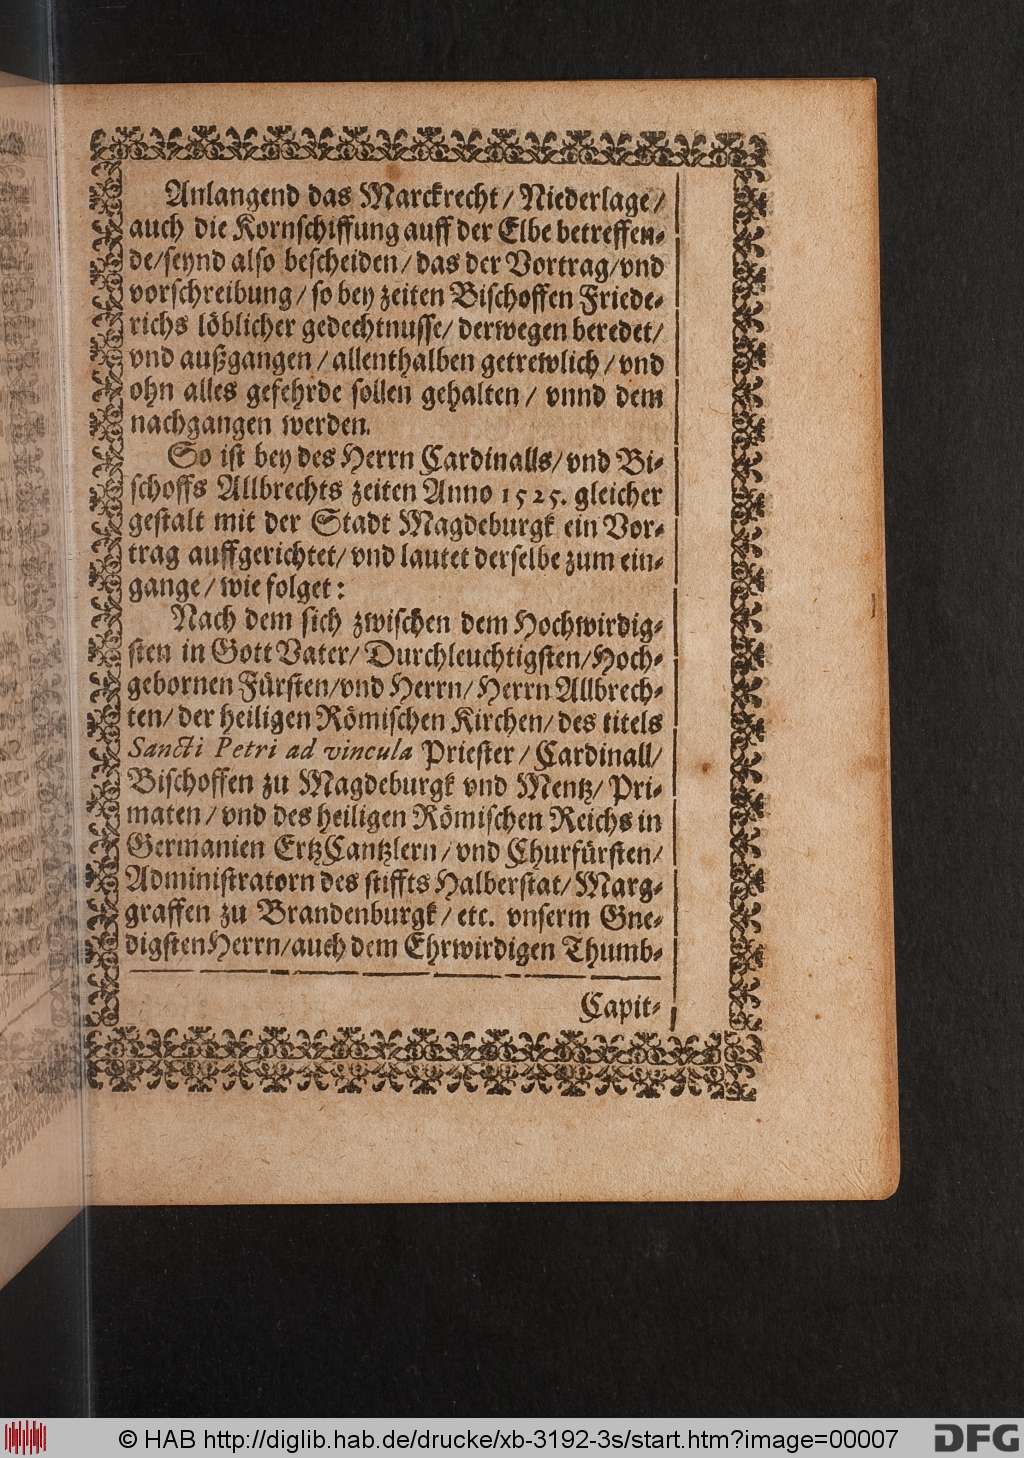 Anlangend das Marckrecht / Niederlage /
auch die Kornschiffung auff der Elbe betreffen-
de / seynd also bescheiden / das der Vortrag / vnd
vorschreibung / so bey zeiten Bischoffen Friede-
richs löblicher gedechtnusse / derwegen beredet /
vnd außgangen / allenthalben getrewlich / vnd
ohn alles gefehrde sollen gehalten / vnnd dem
nachgangen werden.
So ist bey des Herrn Cardinalls / vnd Bi-
schoffs Allbrechts zeiten Anno 1525. gleicher
gestalt mit der Stadt Magdeburgk ein Vor-
trag auffgerichtet / vnd lautet derselbe zum ein-
gange / wie folget:
Nach dem sich zwischen dem Hochwirdig-
sten in Gott Vater / Durchleuchtigsten / Hoch-
gebornen Fürsten / vnd Herrn / Herrn Allbrech-
ten / der heiligen Römischen Kirchen / des titels
Sancti Petri ad vincula Priester / Cardinall /
Bischoffen zu Magdeburgk vnd Mentz / Pri-
maten / vnd des heiligen Römischen Reichs in
Germanien ErtzCantzlern / vnd Churfürsten /
Administratorn des stiffts Halberstat / Marg-
graffen zu Brandenburgk / etc. vnserm Gne-
digsten Herrn / auch dem Ehrwirdigen Thumb-
Capit-
© HAB http://diglib.hab.de/drucke/xb-3192-3s/start.htm?image=00007
DFG